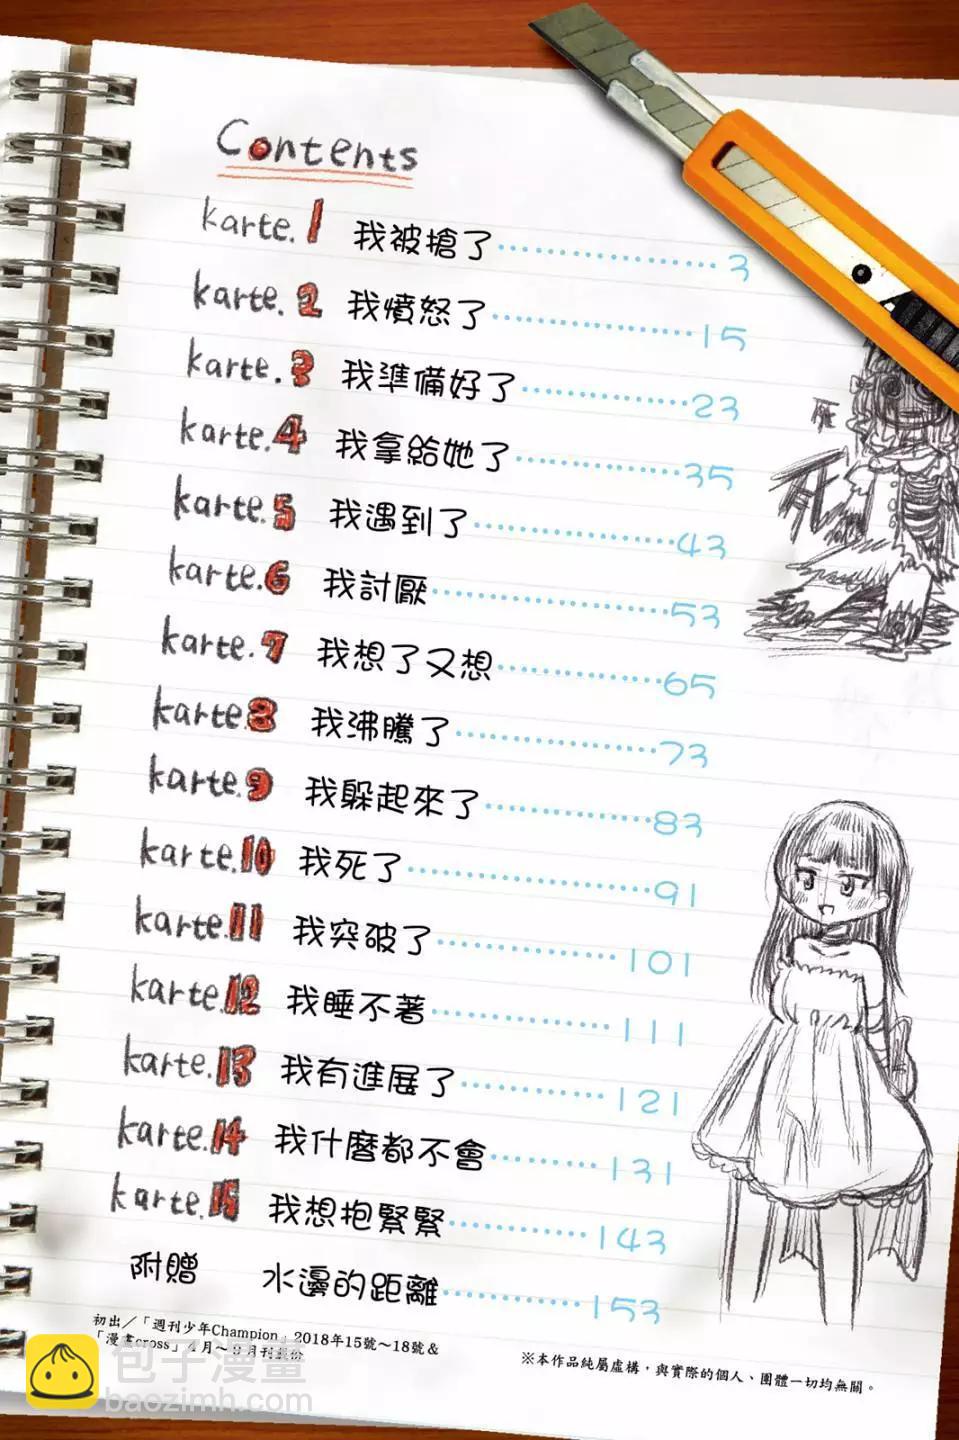 Contents
karte.1 我被搶了 3
karte.2 我憤怒了 15
karte.3 我準備好了 23
karte.4 我拿給她了 35
karte.5 我遇到了 43
karte.6 我討厭 53
karte.7 我想了又想 65
karte.8 我沸騰了 73
karte.9 我躲起來了 83
karte.10 我死了 91
karte.11 我突破了 101
karte.12 我睡不著 111
karte.13 我有進展了 121
karte.14 我什麼都不會 131
karte.15 我想抱緊緊 143
附贈 水邊的距離 153
初出／「週刊少年Champion」2018年15號～18號＆
「漫畫cross」4月～9月刊載份
※本作品純屬虛構，與實際的個人、團體一切均無關。
包子漫畫
baozimh.com